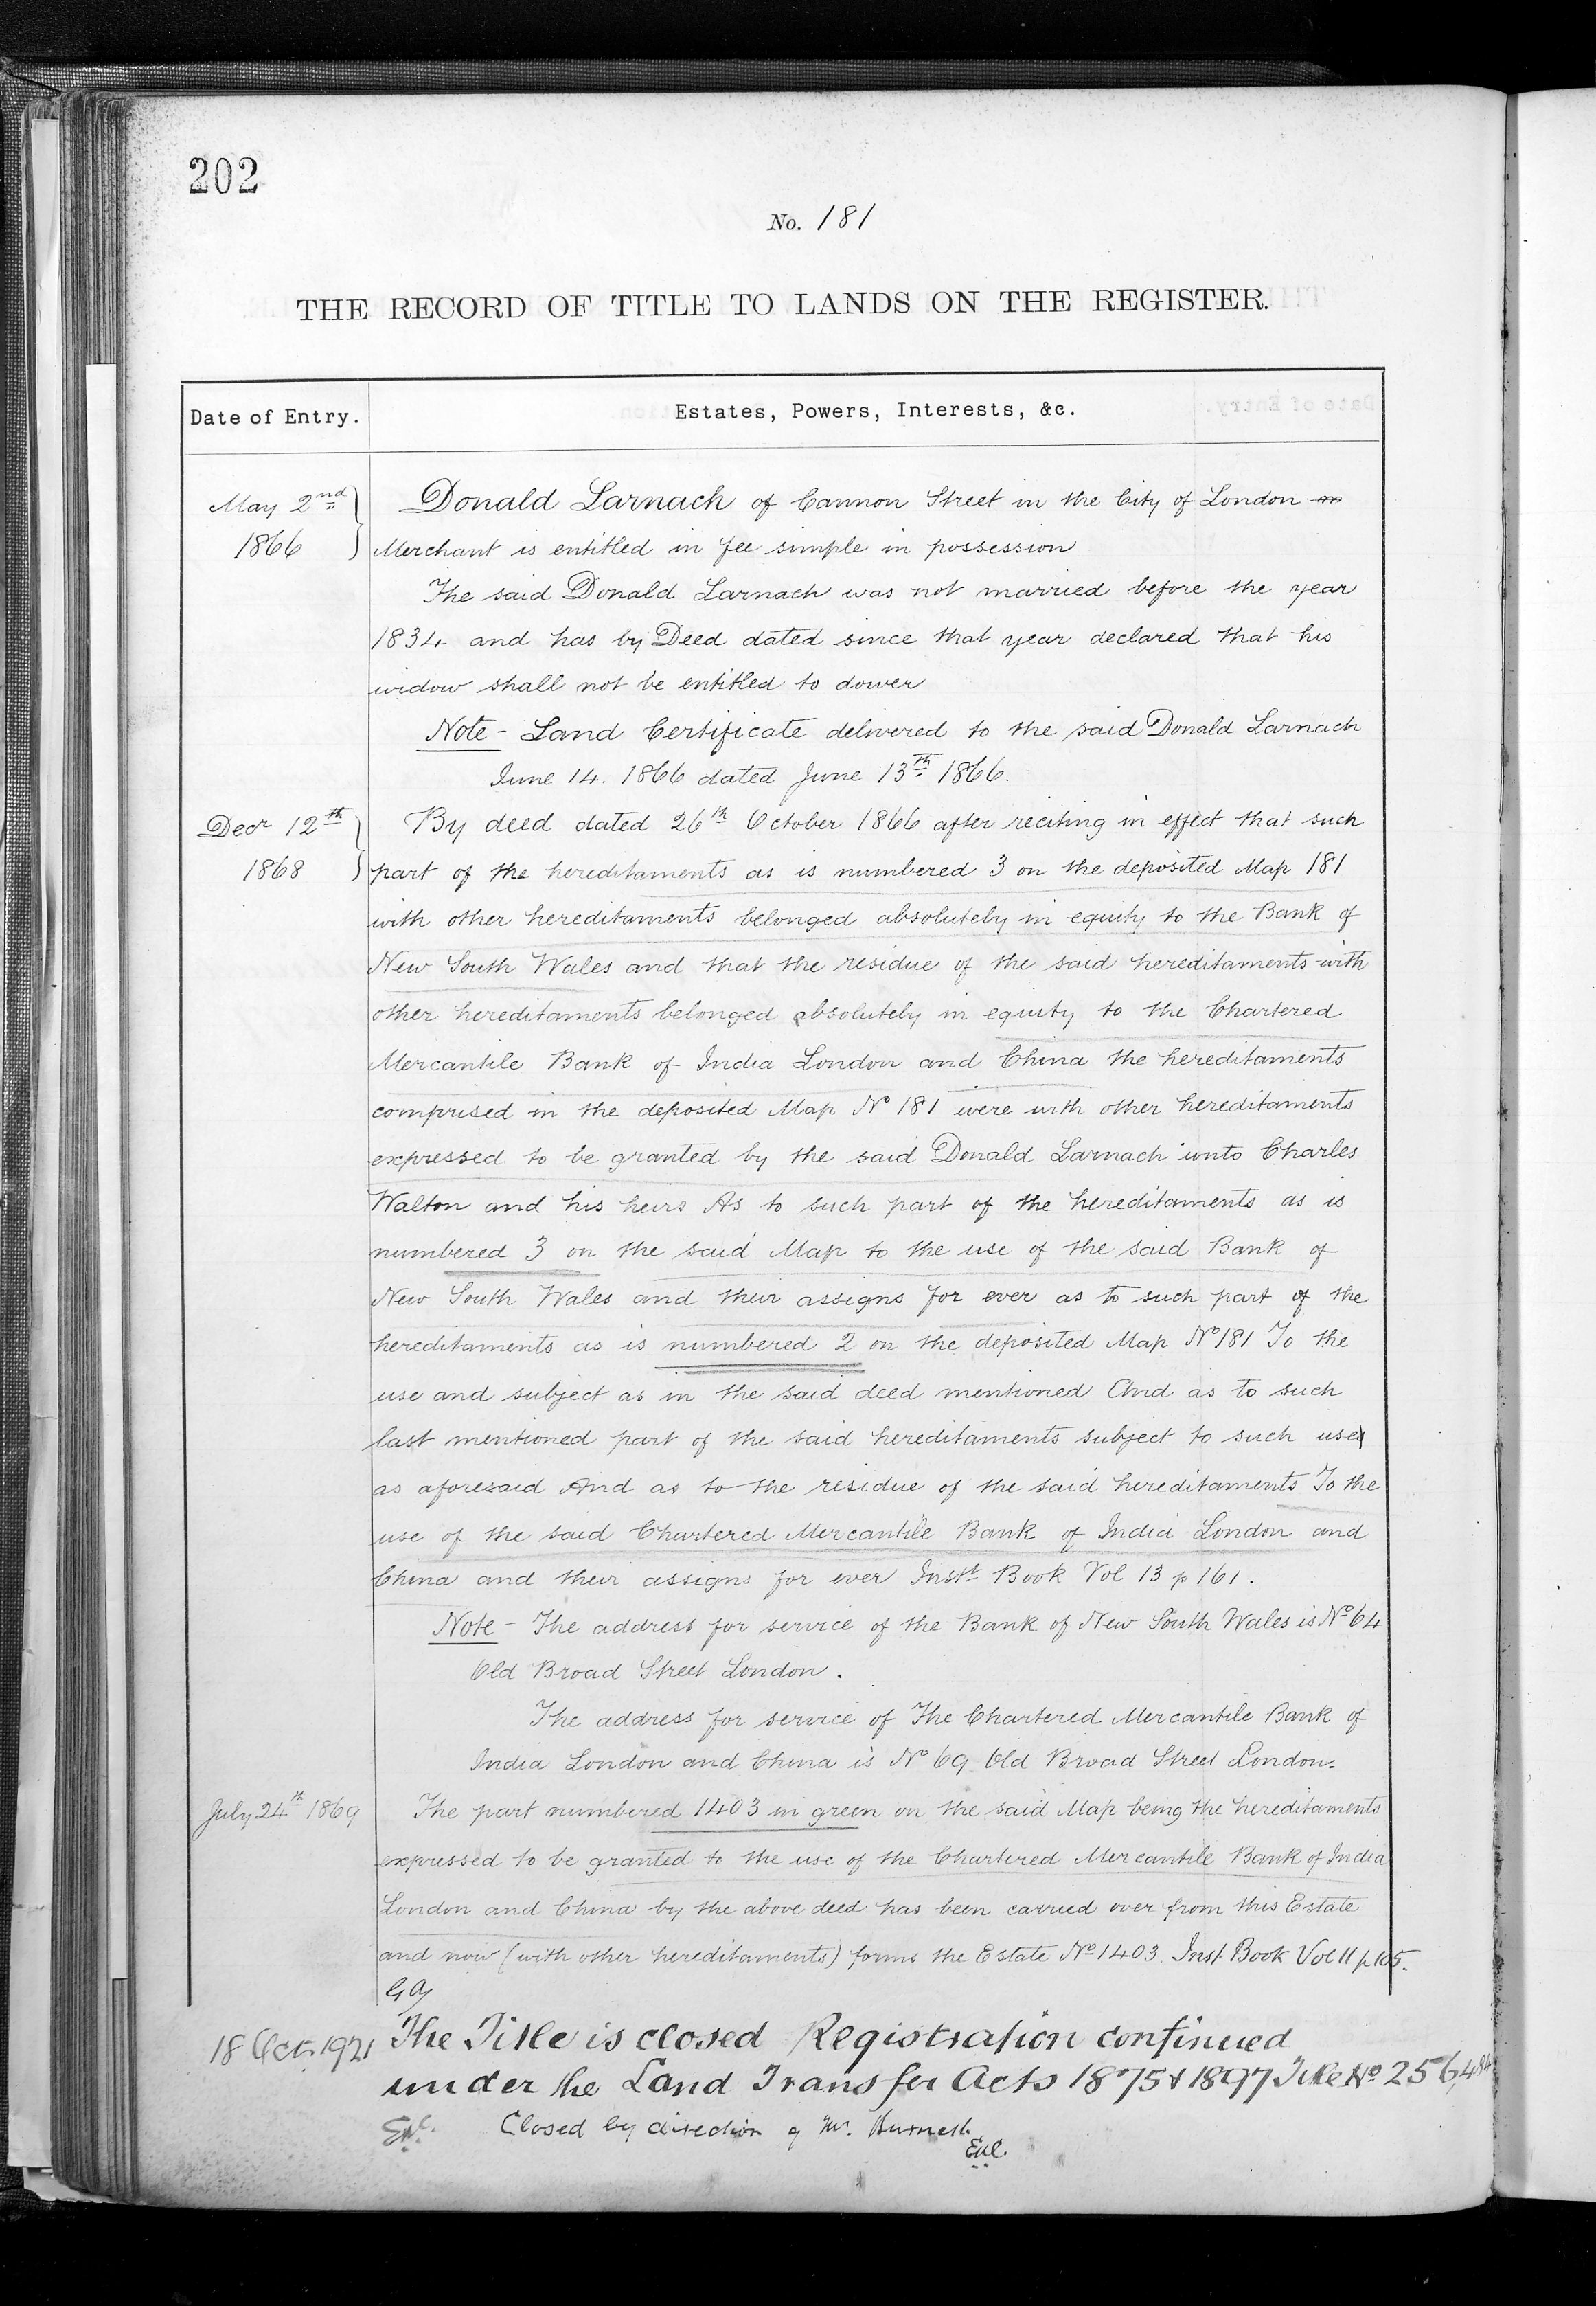 202
No. 181
THE RECORD OF TITLE TO LANDS ON THE REGISTER.
Date of Entry.
Estates, Powers, Interests, &c.
May 2nd
1866
Donald Larnach of Cannon Street in the City of London
Merchant is entitled in fee simple in possession
The said Donald Larnach was not married before the year
1834 and has by Deed dated since that year declared that his
widow shall not be entitled to dower
Note - Land Certificate delivered to the said Donald Larnach
June 14. 1866 dated June 13th 1866.
Decr 12th
1868
By deed dated 26th October 1866 after reciting in effect that such
part of the hereditaments as is numbered 3 on the deposited Map 181
with other hereditaments belonged absolutely in equity to the Bank of
New South Wales and that the residue of the said hereditaments with
other hereditaments belonged absolutely in equity to the Chartered
Mercantile Bank of India London and China the hereditaments
comprised in the deposited Map No 181 were with other hereditaments
expressed to be granted by the said Donald Larnach unto Charles
Walton and his heirs As to such part of the hereditaments as is
numbered 3 on the said Map to the use of the said Bank of
New South Wales and their assigns for ever as to such part of the
hereditaments as is numbered 2 on the deposited Map No 181 To the
use and subject as in the said deed mentioned And as to such
last mentioned part of the said hereditaments subject to such uses
as aforesaid And as to the residue of the said hereditaments To the
use of the said Chartered Mercantile Bank of India London and
China and their assigns for ever Instt Book Vol 13 p 161.
Note - The address for service of the Bank of New South Wales is No 64
Old Broad Street London.
The address for service of The Chartered Mercantile Bank of
India London and China is No 69 Old Broad Street London.
July 24th 1869
The part numbered 1403 in green on the said Map being the hereditaments
expressed to be granted to the use of the Chartered Mercantile Bank of India
London and China by the above deed has been carried over from this Estate
and now (with other hereditaments) forms the Estate No 1403. Inst Book Vol 11 p 105.
18 Oct. 1921
The Title is closed Registration continued
under the Land Transfer Acts 1875 & 1897 Title No 256,484
Closed by direction of Mr.